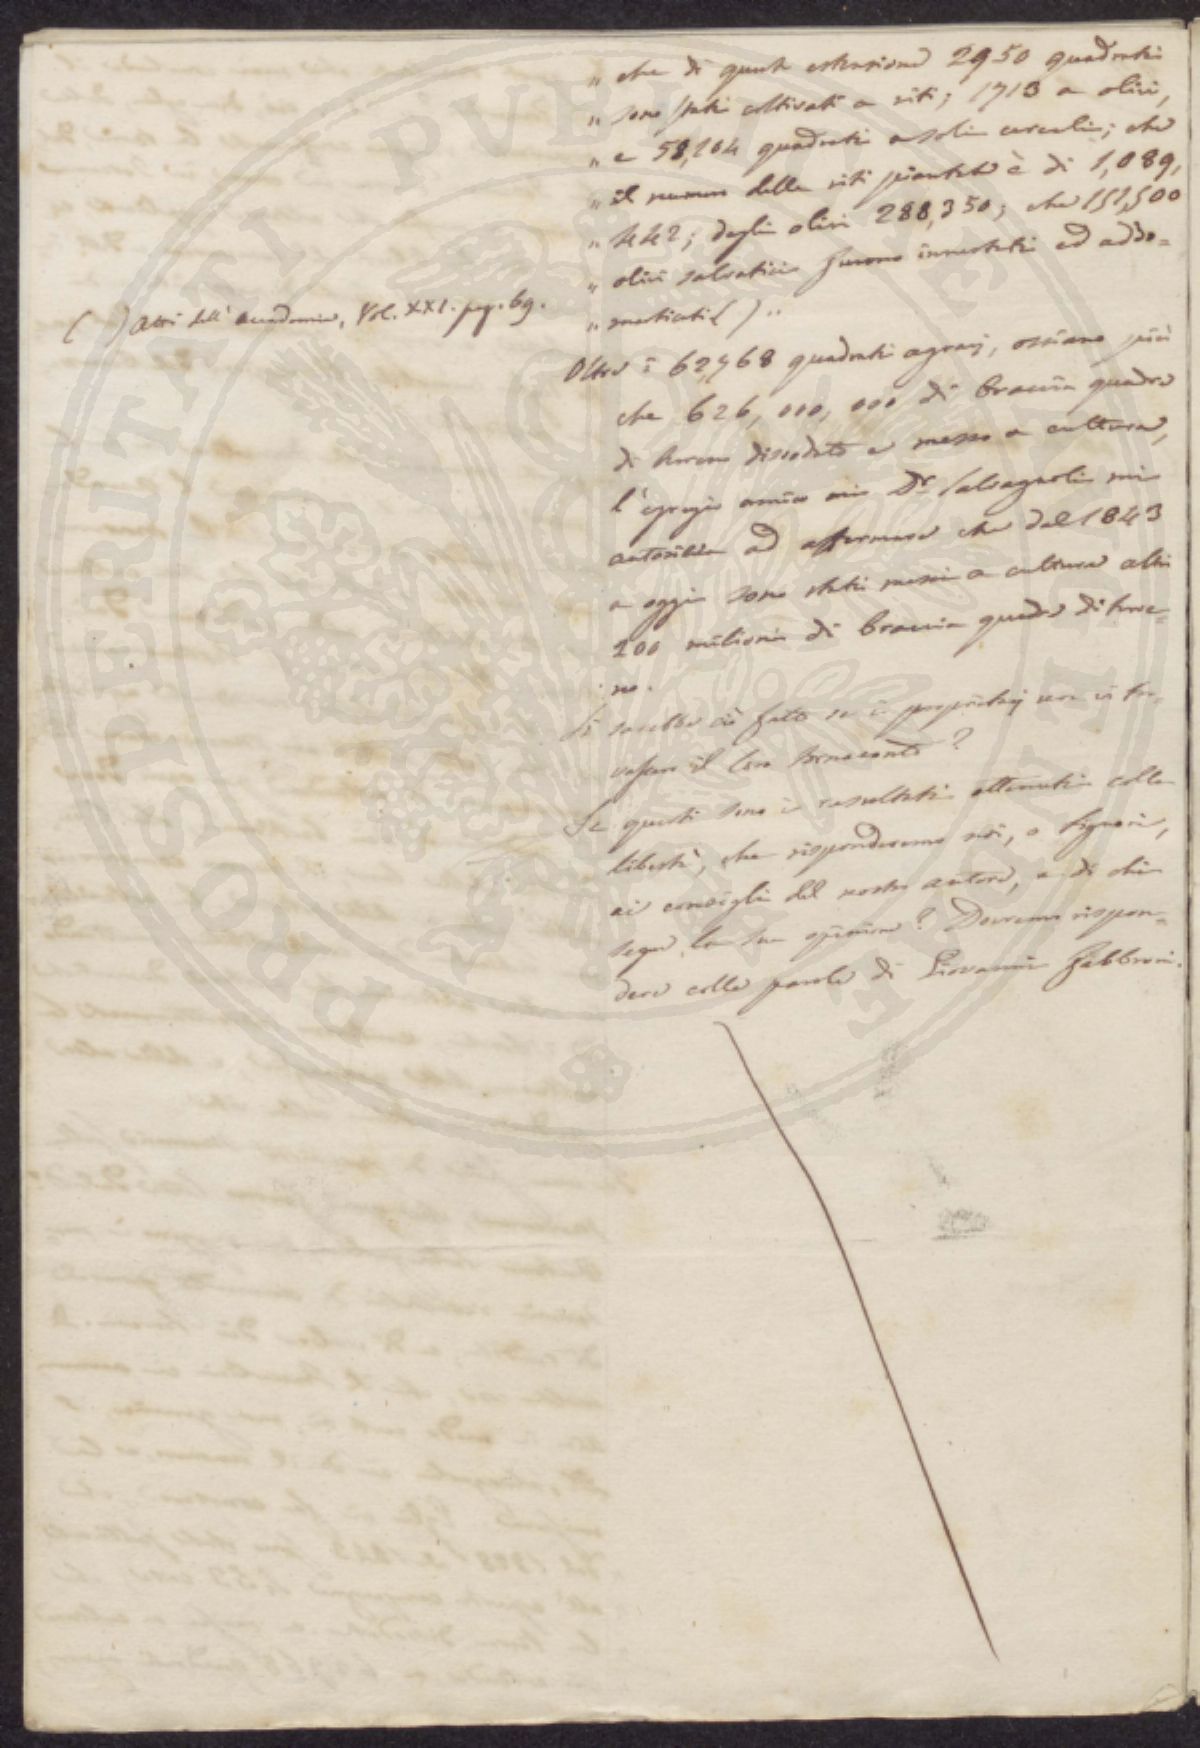 „ che di questa estensione 2950 quadrati
„ sono stati coltivati a viti; 1713 a olivi,
„ e 58,204 quadrati a soli cereali; che
„ il numero delle viti piantate è di 1,089,
„ 442; degli olivi 288,350; che 151,500
„ olivi salvatici furono innestati ed addo=
„ mesticati ( ) „
( ) Atti dell'Accademia, Vol. XXI. pag. 69.
Oltre i 62,768 quadrati agrarj, ossiano più
che 626,000,000 di braccia quadre
di terreno dissodato e messo a cultura,
l'egregio amico mio Dr. Salvagnoli mi
autorizza ad affermare che dal 1843
a oggi sono stati messi a cultura altri
200 milioni di braccia quadre di terre=
no.
Si sarebbe ciò fatto se i proprietarj non vi tro=
vassero il loro tornaconto?
Se questi sono i resultati ottenuti colla
libertà, che risponderemo noi, o Signori,
ai consigli del nostro autore, e di chi
segue la sua opinione? Dovremo rispon=
dere colle parole di Giovanni Fabbroni.
PROSPERITATI PVBLICAE AVGENDAE